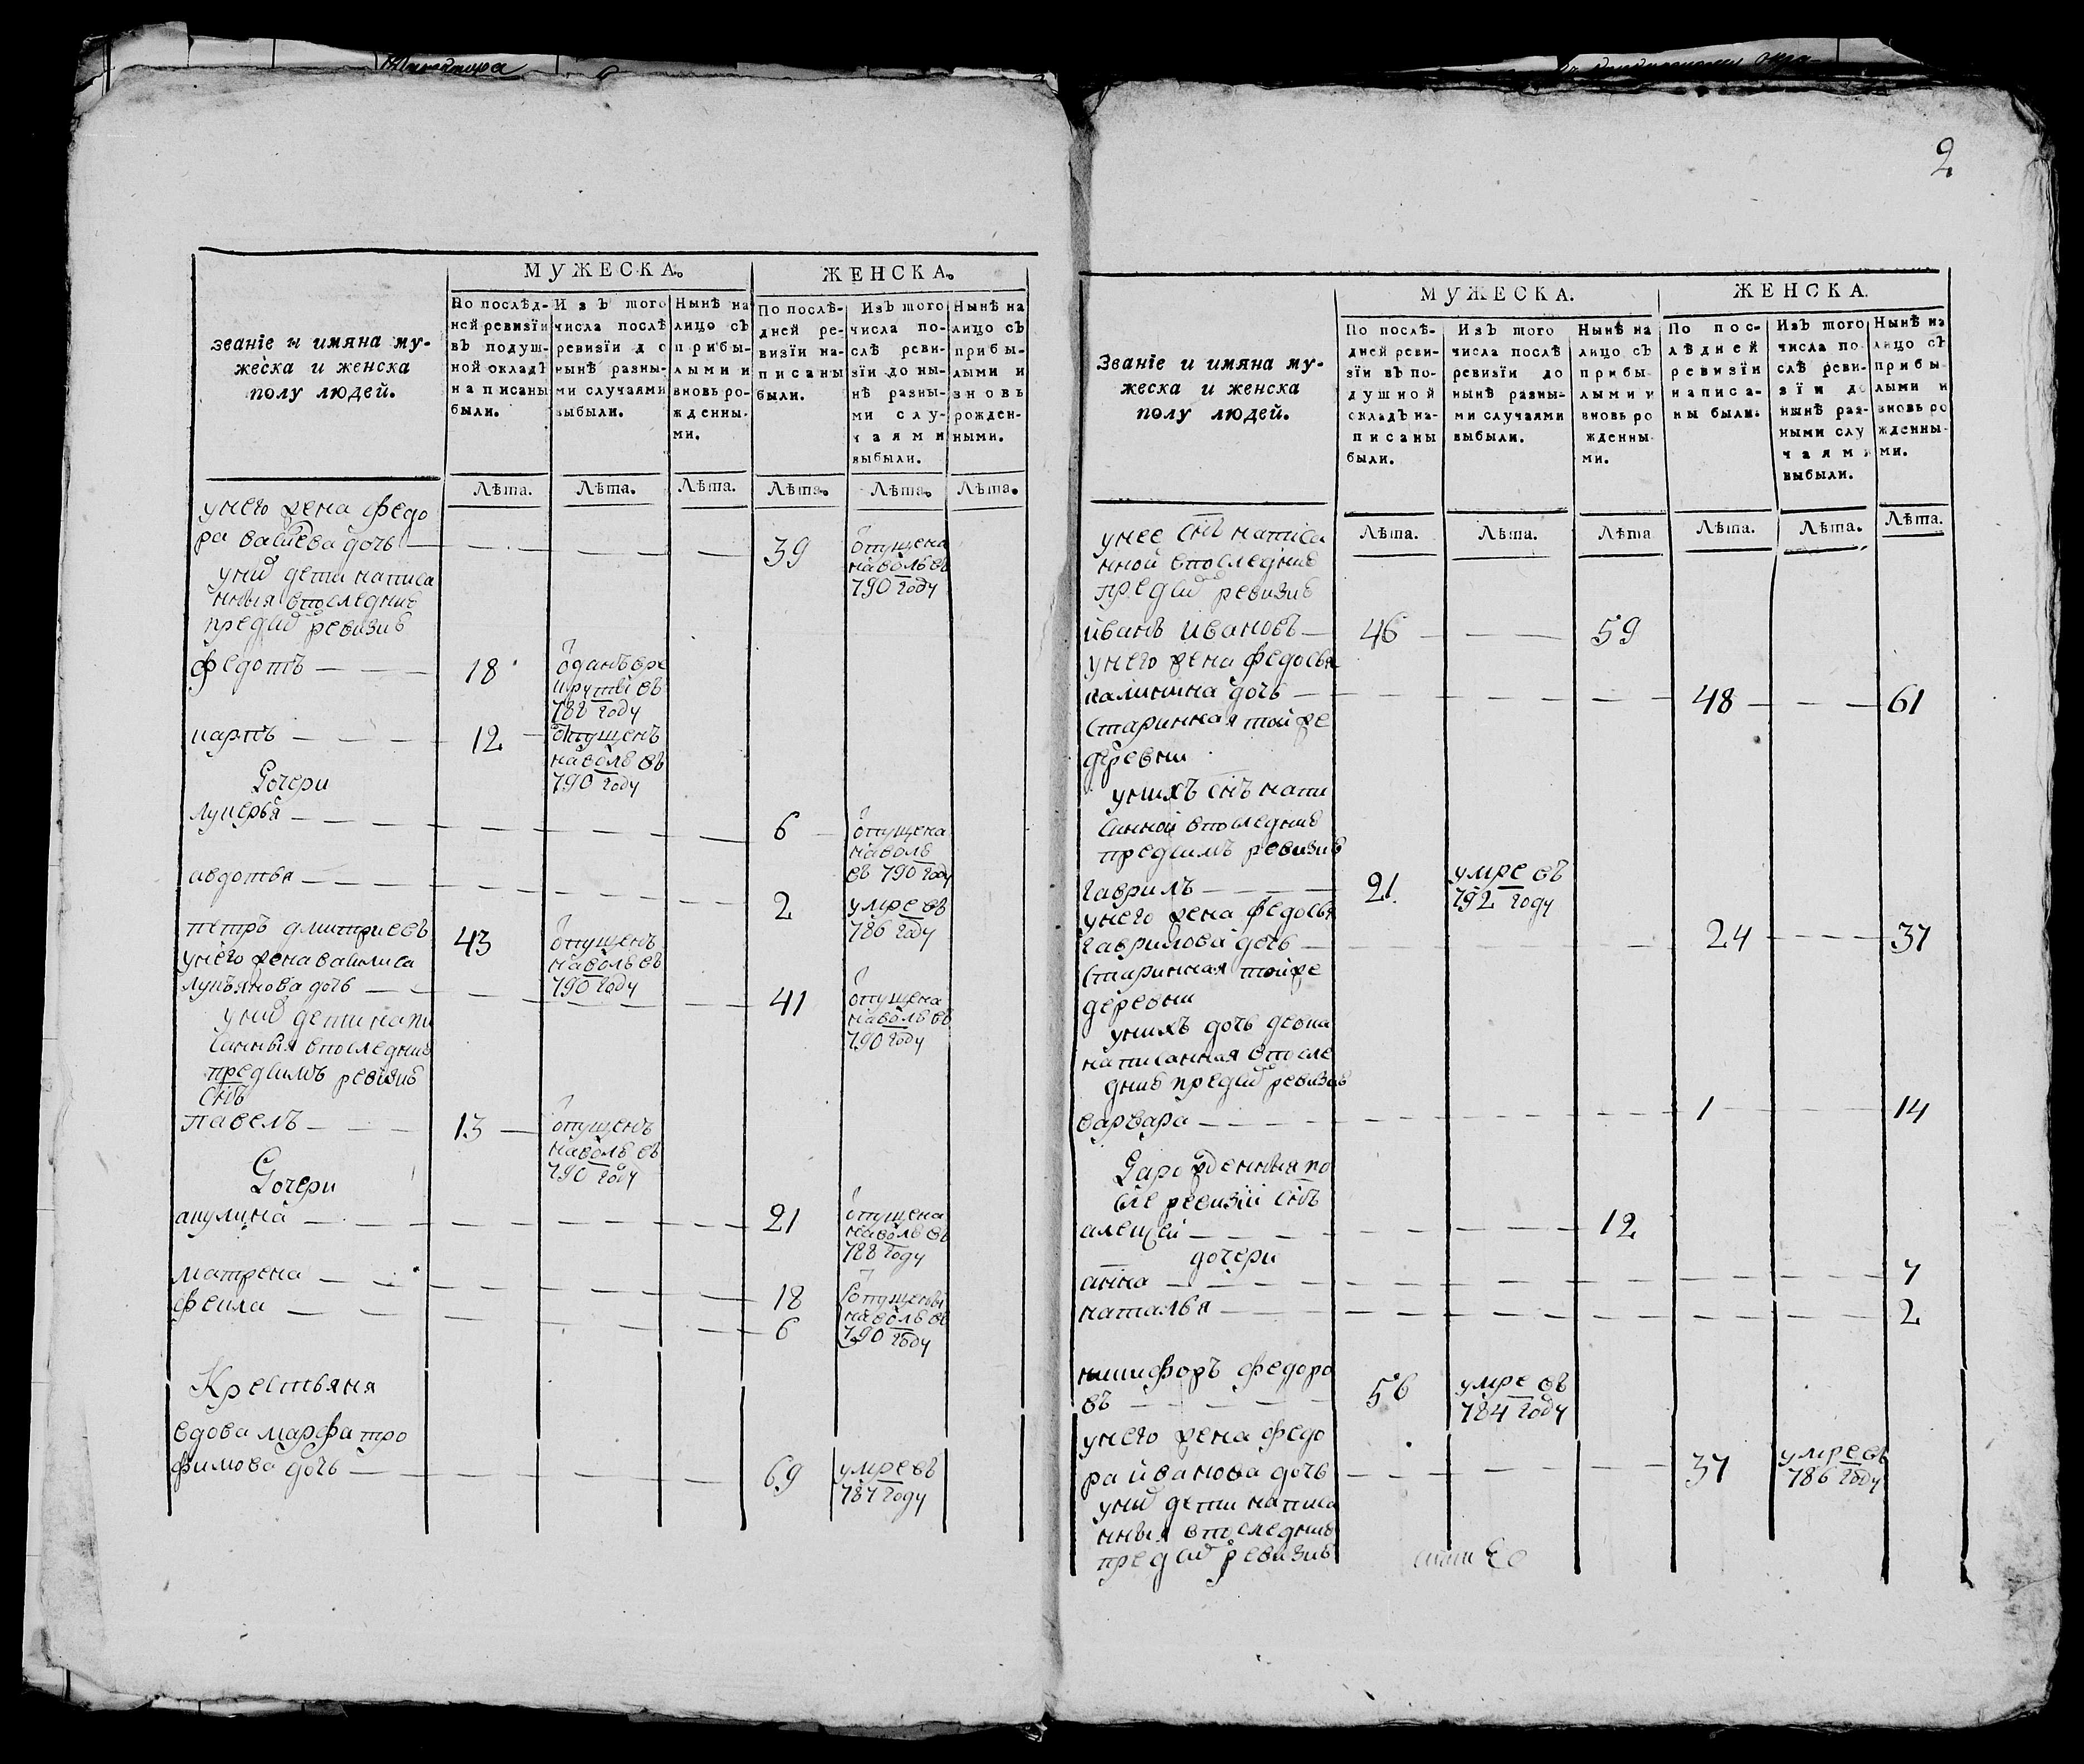 2
Званїе и имяна му-
жеска и женска
полу людей.
МУЖЕСКА.
ЖЕНСКА.
По послѣд-
ней ревизїи
въ подуш-
ной окладъ
написаны
были.
Изъ того
числа послѣ
ревизїи до
нынѣ разны-
ми случаями
выбыли.
Нынѣ на
лицо съ
прибы-
лыми и
вновь ро-
жденны-
ми.
По послѣ-
дней ре-
визїи на-
писаны
были.
Изъ того
числа по-
слѣ реви-
зїи до ны-
нѣ разны-
ми слу-
чаями
выбыли.
Нынѣ на
лицо съ
прибы-
лыми и
вновь
рожден-
ными.
Лѣта. Лѣта. Лѣта. Лѣта. Лѣта. Лѣта.
унего жена федо
ра васи́ева дочь 39 отпущена
наволь въ
790 году
уних дети написа
нныя впоследние
пред сим ревизие
федотъ 18 отданъ вре
круты въ
788 году
карпъ 12 отпущенъ
наволь въ
790 году
Дочери
лукерья 6 отпущена
наволь
въ 790 году
авдотья 2 умре въ
786 году
петръ дмитриевъ 43 отпущенъ
наволь въ
790 году
унего жена василиса
лукьянова дочь 41 отпущена
наволь въ
790 году
уних дети напи
санныя впоследние
предсимъ ревизие
снъ
павелъ 13 отпущенъ
наволь въ
790 году
Дочери
акулина 21 отпущена
наволь въ
788 году
матрена 18 отпущены
наволь въ
790 году
фекла 6
Крестьяня
вдова марфа тро
фимова дочь 69 умре въ
787 году
Званїе и имяна му-
жеска и женска
полу людей.
МУЖЕСКА.
ЖЕНСКА.
По послѣ-
дней реви-
зїи въ по-
душной
окладъ на-
писаны
были.
Изъ того
числа послѣ
ревизїи до
нынѣ разны-
ми случаями
выбыли.
Нынѣ на
лицо съ
прибы-
лыми и
вновь ро
жденны-
ми.
По пос-
лѣдней
ревизїи
написа-
ны были.
Изъ того
числа по
слѣ реви-
зїи до
нынѣ раз-
ными слу
чаями
выбыли.
Нынѣ на
лицо съ
прибы-
лыми и
вновь ро
жденны-
ми.
Лѣта. Лѣта. Лѣта Лѣта. Лѣта. Лѣта.
унее снъ написа
нной впоследние
пред сим ревизие
иванъ ивановъ 46 59
унего жена федосья
калинина дочь 48 61
старинная тойже
деревни
унихъ снъ напи
санной впоследние
предсимъ ревизие
гаврилъ 21 умре въ
792 году
унего жена федосья
гаврилова дочь 24 37
старинная тойже
деревни
унихъ дочь девка
написанная впосле
дние предсим ревизие
варвара 1 14
Да рожденныя по
сле ревизии снъ
алексей 12
дочери
анна 7
наталья 2
никифоръ федоро
въ 56 умре въ
784 году
унего жена федо
ра иванова дочь 37 умре въ
786 году
уних дети написа
нныя впоследние
пред сим ревизие